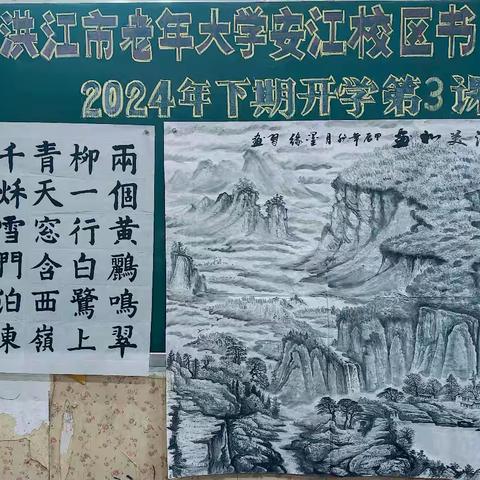 洪江市老年大学安江校区书
2024年下期开学第3课
兩個黃鸝鳴翠
柳一行白鷺上
青天窓含西嶺
千秋雪門泊東
美如畫
甲辰年秋月墨緣習畫